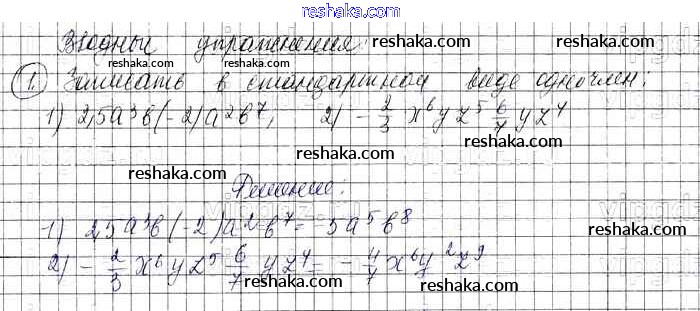 reshaka.com
Вводные упражнения: reshaka.com
reshaka.com
1. Записать в стандартном виде одночлен:
reshaka.com
1) 2,5a³b(-2)a²b⁷, 2) -2/3 x⁶yz⁵ 6/7 yz⁴
reshaka.com
reshaka.com
reshaka.com
Решение:
reshaka.com
reshaka.com
1) 2,5a³b(-2)a²b⁷ = -5a⁵b⁸
reshaka.com
2) -2/3 x⁶yz⁵ 6/7 yz⁴ = -4/7 x⁶y²z⁹
reshaka.com
reshaka.com